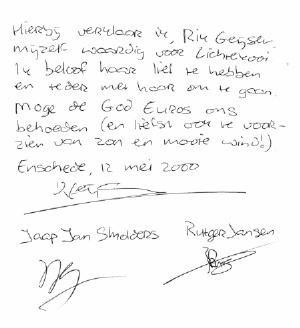 Hierbij verklaar ik, Rik Geysen
mijzelf waardig voor Lichtekooi
Ik beloof haar lief te hebben
en teder met haar om te gaan.
Moge de God Euros ons
behoeden (en liefst ook te voor-
zien van zon en mooie wind!)
Enschede, 12 mei 2000
Jaap Jan Smolders Rutger Jansen